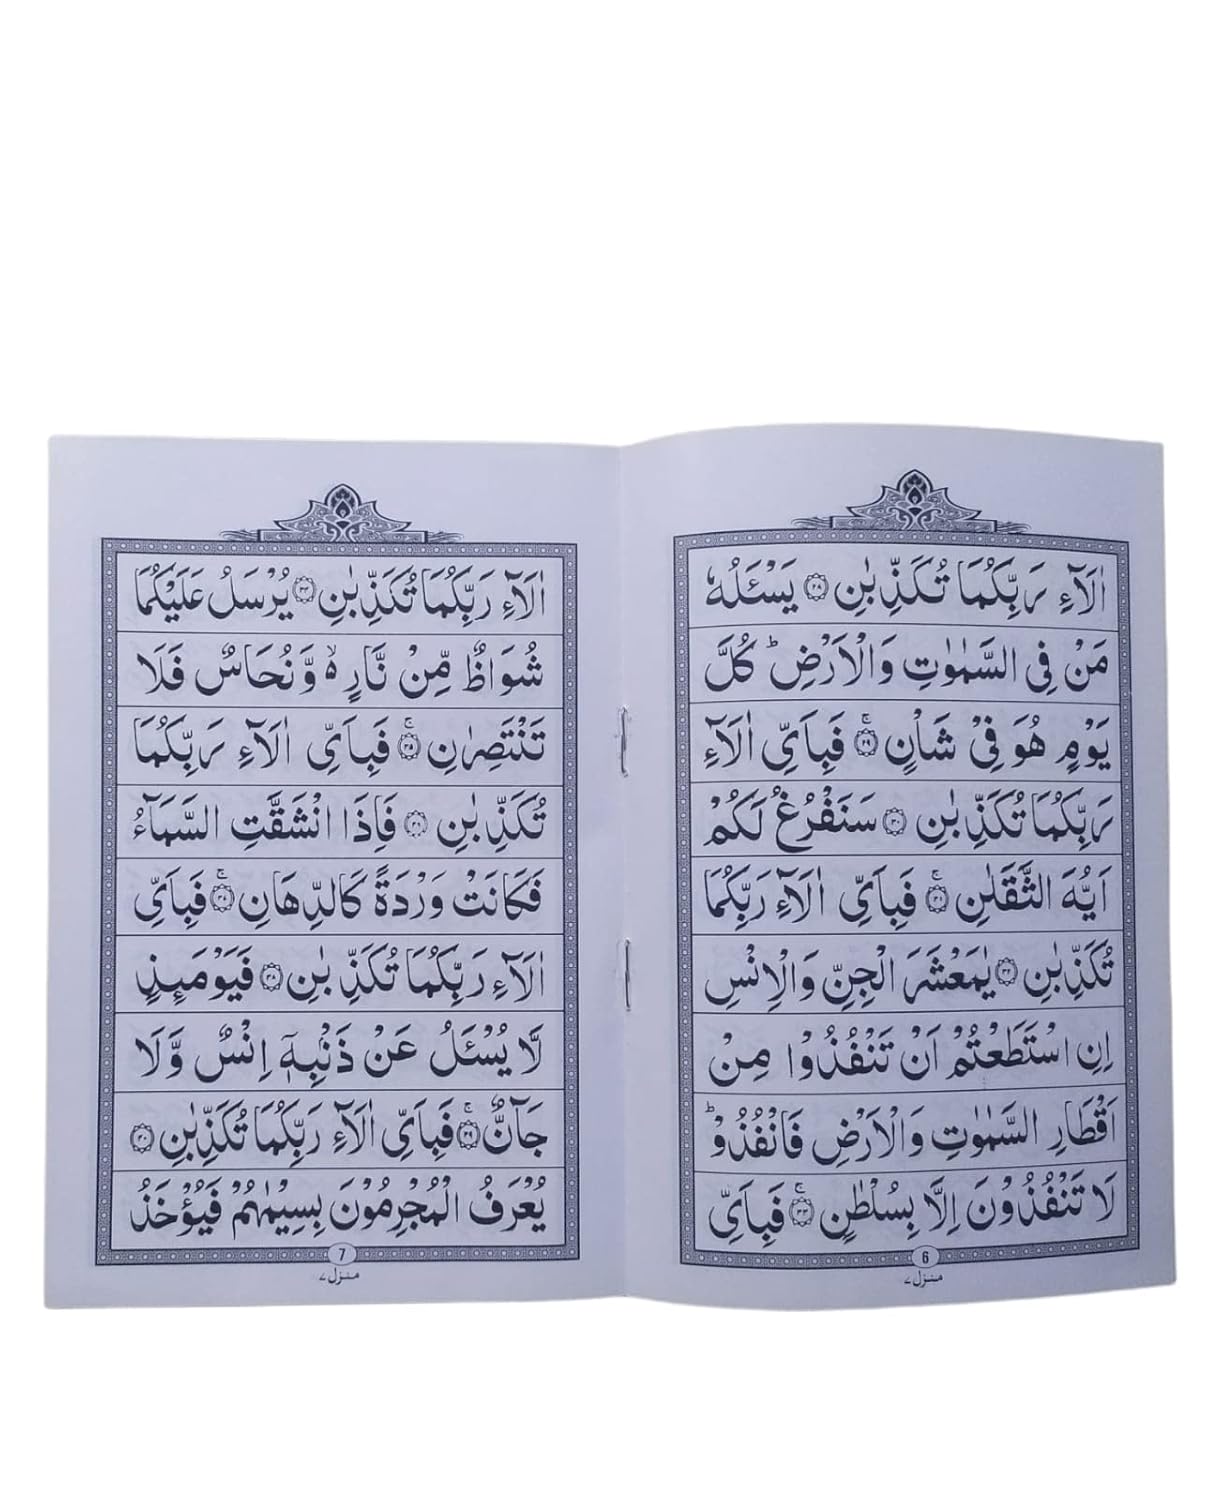 اٰلَآءِ رَبِّكُمَا تُكَذِّبٰنِ ۝۲۸ يَسْـَٔلُهٗ
مَنْ فِى السَّمٰوٰتِ وَالْاَرْضِ ؕ كُلَّ
يَوْمٍ هُوَ فِىْ شَاْنٍ ۚ۝۲۹ فَبِاَىِّ اٰلَآءِ
رَبِّكُمَا تُكَذِّبٰنِ ۝۳۰ سَنَفْرُغُ لَكُمْ
اَيُّهَ الثَّقَلٰنِ ۚ۝۳۱ فَبِاَىِّ اٰلَآءِ رَبِّكُمَا
تُكَذِّبٰنِ ۝۳۲ يٰمَعْشَرَ الْجِنِّ وَالْاِنْسِ
اِنِ اسْتَطَعْتُمْ اَنْ تَنْفُذُوْا مِنْ
اَقْطَارِ السَّمٰوٰتِ وَالْاَرْضِ فَانْفُذُوْا ؕ
لَا تَنْفُذُوْنَ اِلَّا بِسُلْطٰنٍ ۚ۝۳۳ فَبِاَىِّ
6
منزل ۷
اٰلَآءِ رَبِّكُمَا تُكَذِّبٰنِ ۝۳۴ يُرْسَلُ عَلَيْكُمَا
شُوَاظٌ مِّنْ نَّارٍ ۙ۬ وَّنُحَاسٌ فَلَا
تَنْتَصِرٰنِ ۚ۝۳۵ فَبِاَىِّ اٰلَآءِ رَبِّكُمَا
تُكَذِّبٰنِ ۝۳۶ فَاِذَا انْشَقَّتِ السَّمَآءُ
فَكَانَتْ وَرْدَةً كَالدِّهَانِ ۚ۝۳۷ فَبِاَىِّ
اٰلَآءِ رَبِّكُمَا تُكَذِّبٰنِ ۝۳۸ فَيَوْمَئِذٍ
لَّا يُسْـَٔلُ عَنْ ذَنْۢبِهٖۤ اِنْسٌ وَّلَا
جَآنٌّ ۚ۝۳۹ فَبِاَىِّ اٰلَآءِ رَبِّكُمَا تُكَذِّبٰنِ ۝۴۰
يُعْرَفُ الْمُجْرِمُوْنَ بِسِيْمٰهُمْ فَيُؤْخَذُ
7
منزل ۷